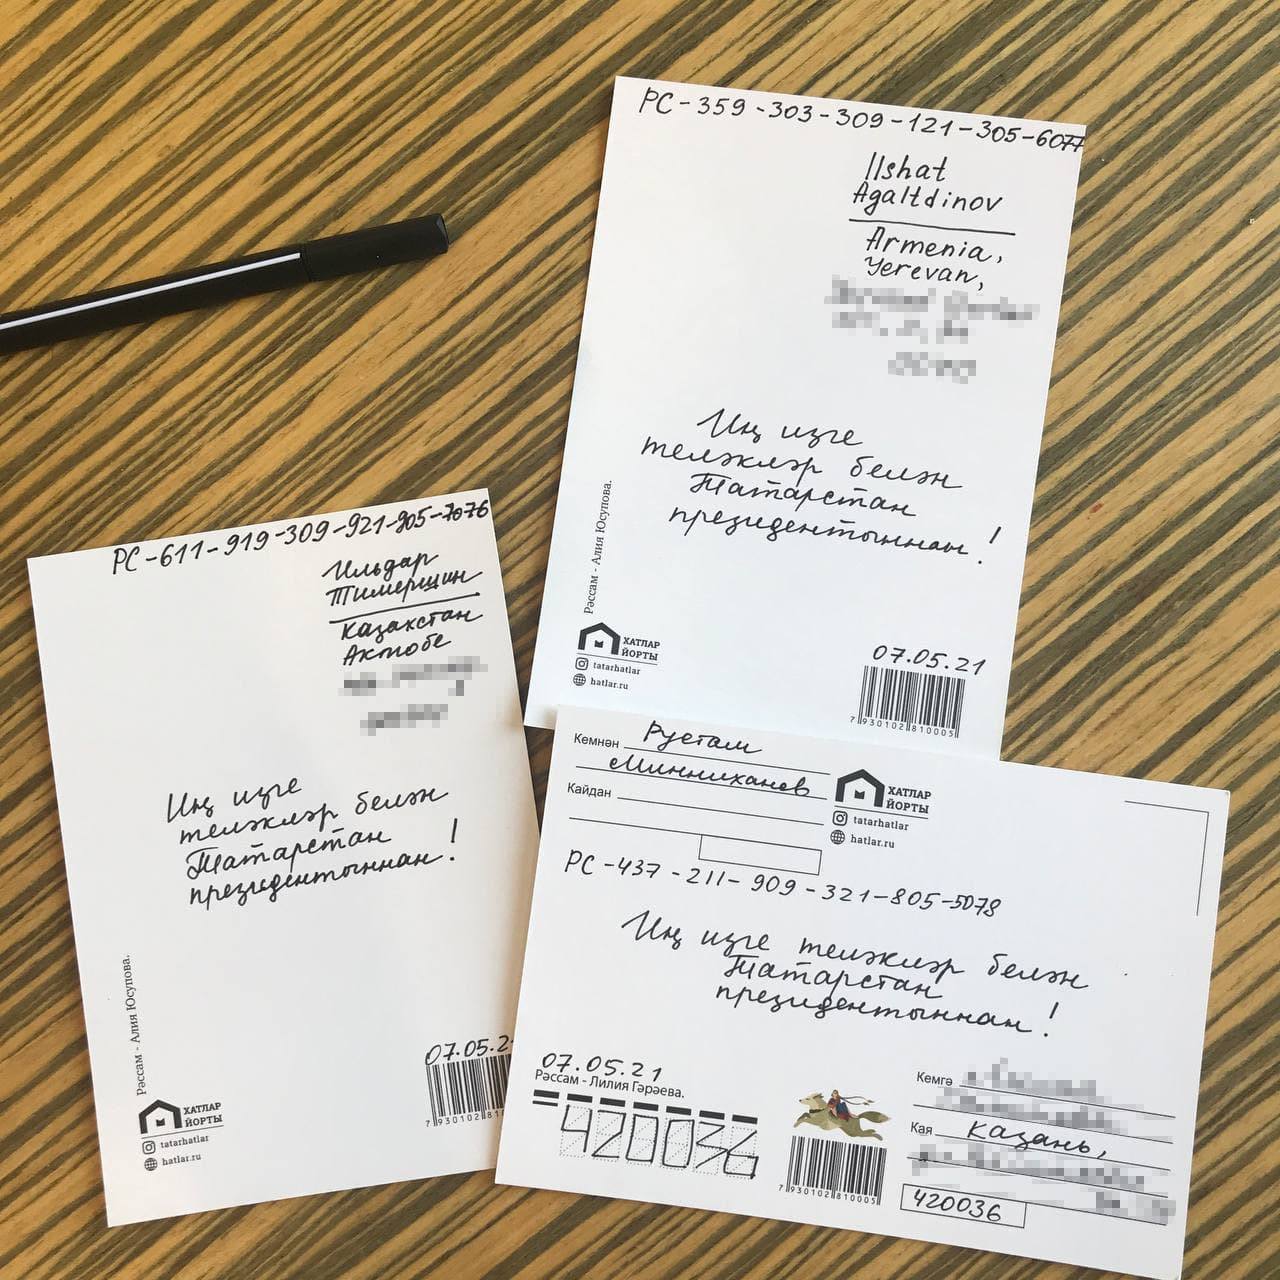 PC-359-303-309-121-305-6077
Ilshat
Agaltdinov
Armenia,
Yerevan,
Иң изге
теләкләр белән
Татарстан
президентыннан!
Рәссам - Алия Юсупова.
ХАТЛАР
ЙОРТЫ
tatarhatlar
hatlar.ru
07.05.21
7930102810005
PC-611-919-309-921-905-7076
Ильдар
Тимершин
Казахстан
Актобе
Иң изге
теләкләр белән
Татарстан
президентыннан!
Рәссам - Алия Юсупова.
ХАТЛАР
ЙОРТЫ
tatarhatlar
hatlar.ru
07.05.2
7930102810
Кемнән Рустам
Минниханов
Кайдан
ХАТЛАР
ЙОРТЫ
tatarhatlar
hatlar.ru
PC-437-211-909-321-805-5078
Иң изге теләкләр белән
Татарстан
президентыннан!
07.05.21
Рәссам - Лилия Гәрәева.
420036
7930102810005
Кемгә
Кая Казань,
420036